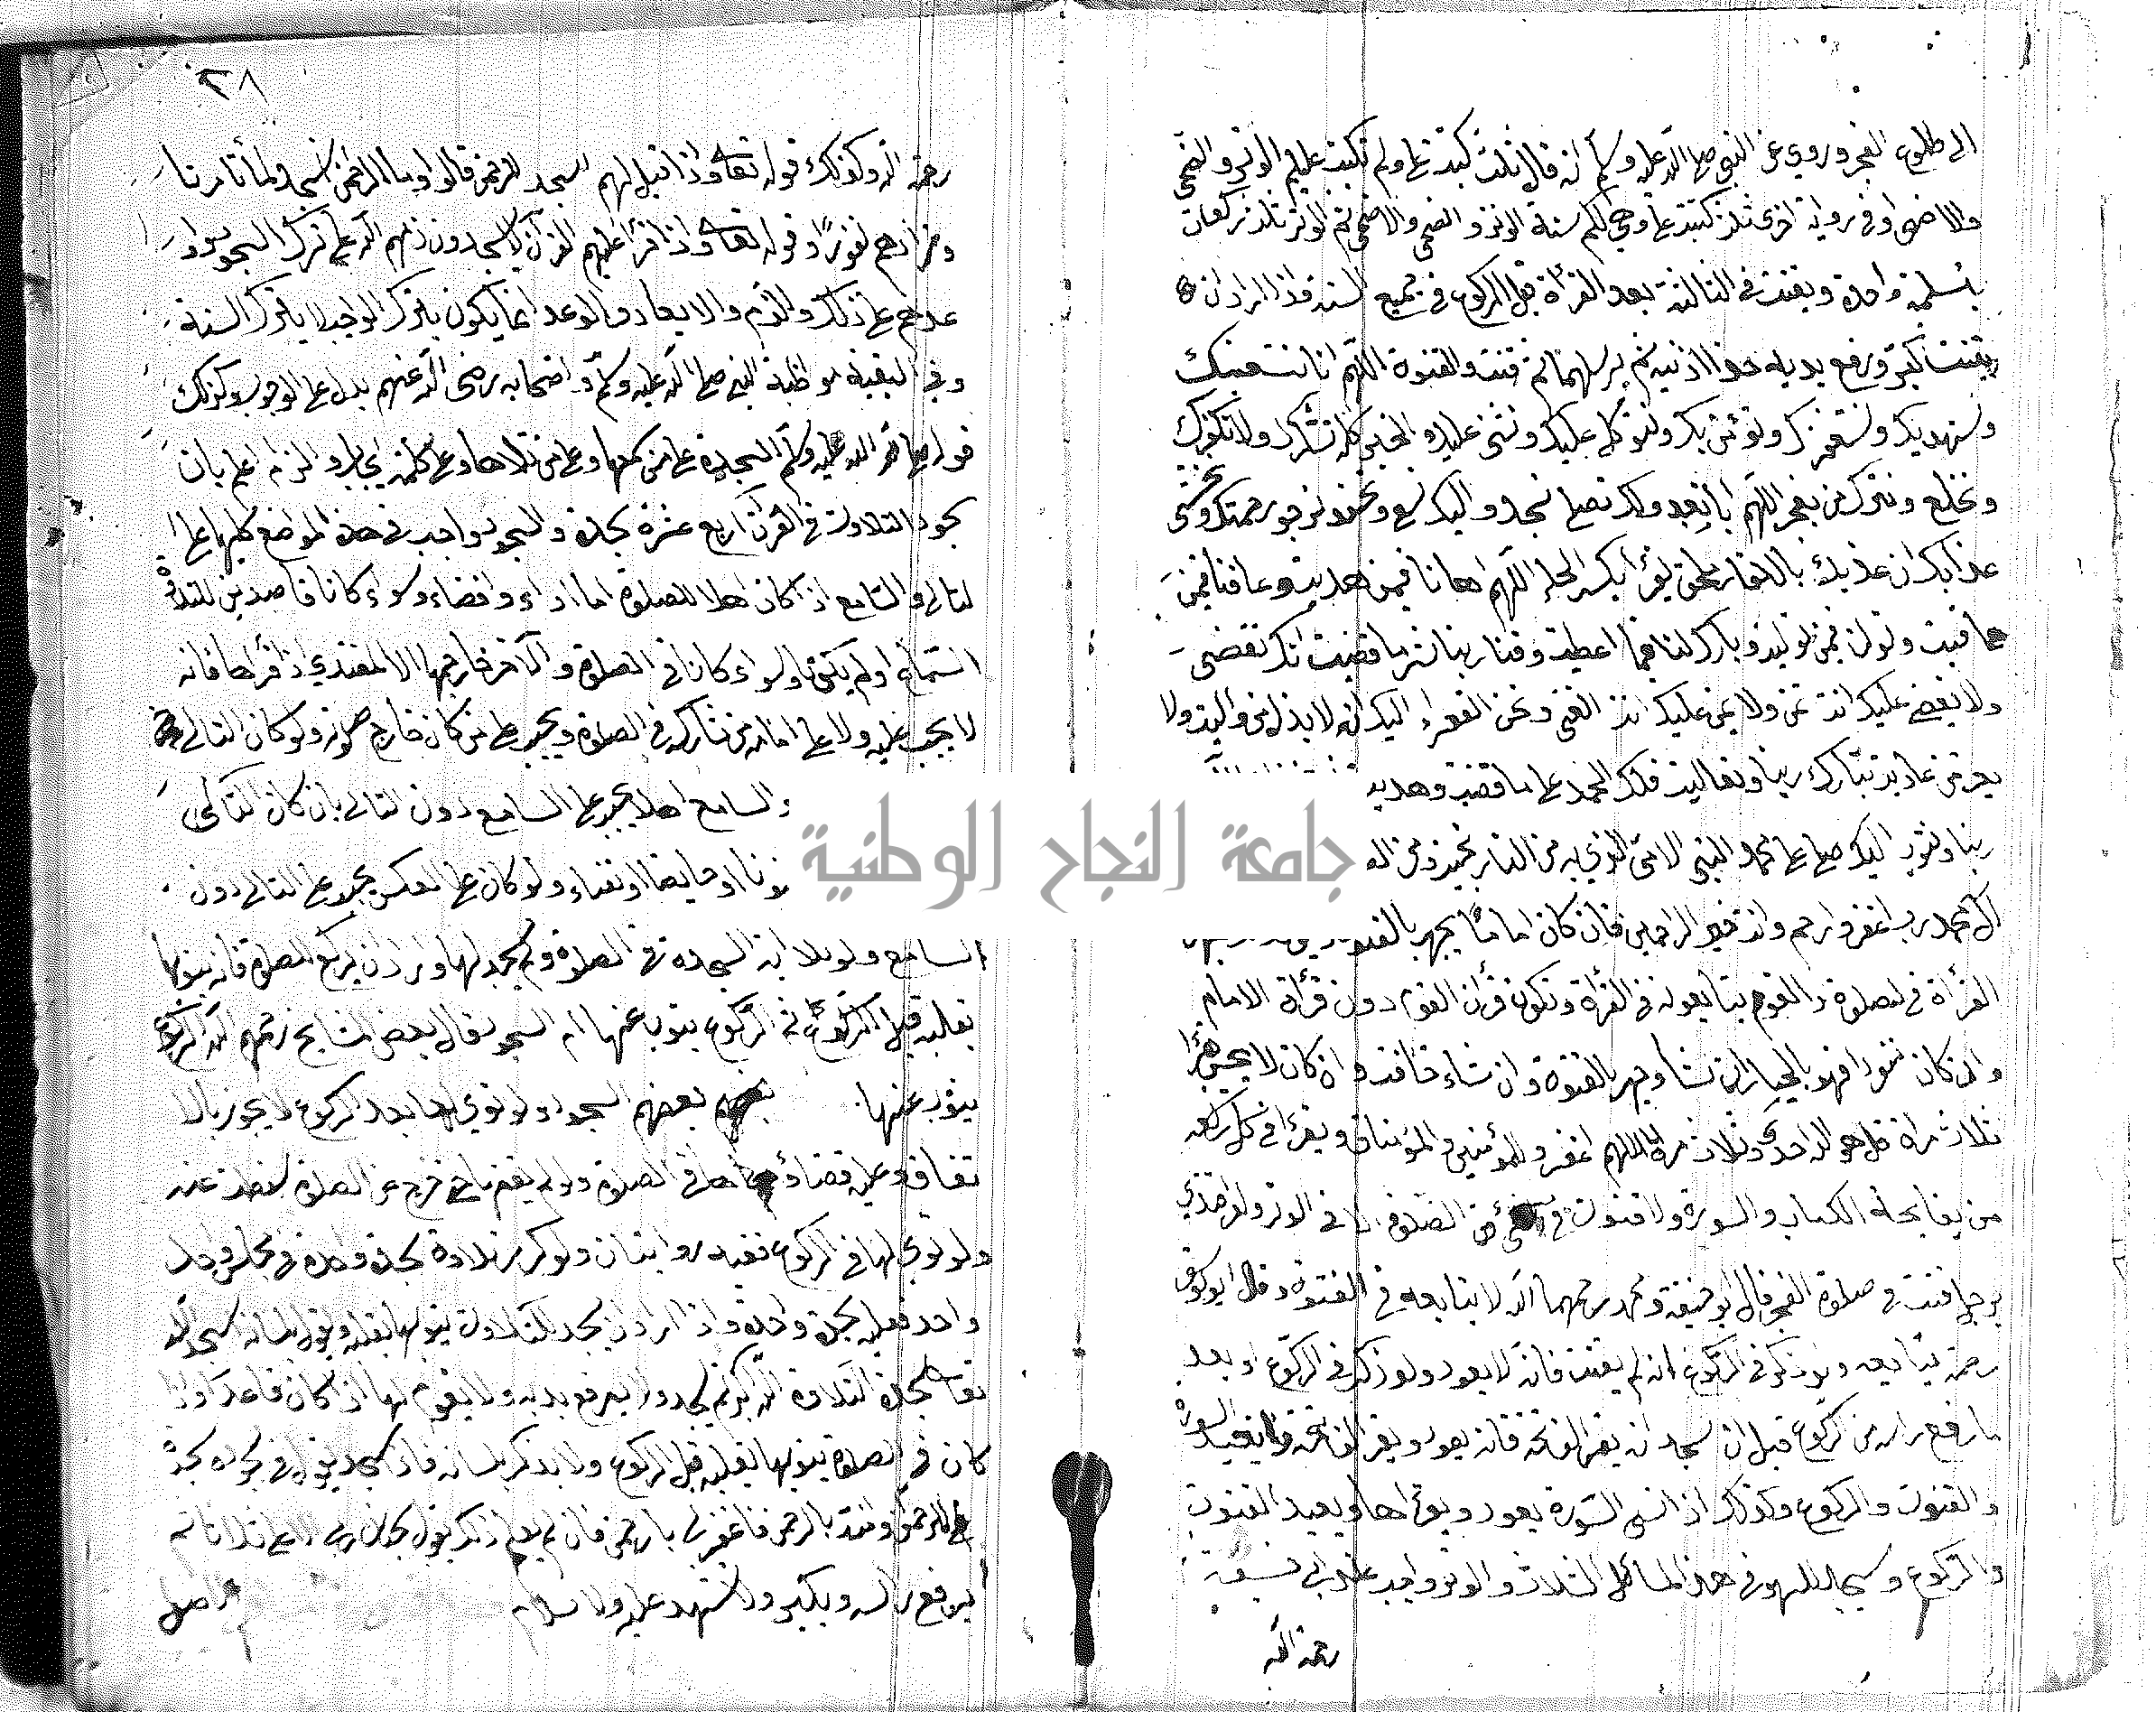 الى طلوع الفجر وروي عن النبي صلى الله عليه وسلم انه قال ثلث كتبت علي ولم تكتب عليكم الوتر والضحى
والاضحى وفي رواية اخرى ثلث كتبت علي وهي لكم سنة الوتر والضحى والاضحى ثم الوتر ثلث ركعات
بتسليمة واحدة ويقنت في الثالثة بعد القرأة قبل الركوع في جميع السنة فاذا اراد ان
يقنت كبر ورفع يديه حذا اذنيه ثم يرسلهما ثم قنت والقنوة اللهم انا نستعينك
ونستهديك ونستغفرك ونؤمن بك ونتوكل عليك ونثني عليك الخير كله نشكرك ولا نكفرك
ونخلع ونترك من يفجرك اللهم اياك نعبد ولك نصلي ونسجد واليك نسعى ونحفد نرجو رحمتك ونخشى
عذابك ان عذابك بالكفار ملحق اللهم اهدنا فيمن هديت وعافنا فيمن
عافيت وتولنا فيمن توليت وبارك لنا فيما اعطيت وقنا ربنا شر ما قضيت انك تقضي
ولا يقضى عليك انت تمن ولا يمن عليك انت الغني ونحن الفقراء اليك انه لا يذل من واليت ولا
يعز من عاديت تباركت ربنا وتعاليت فلك الحمد على ما قضيت وهديت
ربنا ونتوب اليك صل على محمد النبي الامي الذي به من النار
جامعة النجاح الوطنية
آل محمد رب اغفر وارحم وانت خير الراحمين فان كان اماما يجهر بالقنوت
القرأة في الصلوة والقوم يتابعونه في القرأة وتكون قرأة القوم دون قرأة الامام
وان كان منفردا فهو بالخيار ان شاء جهر بالقنوة وان شاء خافت وان كان لا يحسن هذا
ثلاث مرات قل هو الله احد وثلاث مرات اللهم اغفر وللمؤمنين والمؤمنات ويقرأ في كل ركعة
من بفاتحة الكتاب والسورة ولا قنوت في شئ من الصلوة الا في الوتر ولو اقتدي
برجل قنت في صلوة الفجر قال ابو حنيفة ومحمد رحمهما الله لا يتابعه في القنوة وقال ابو يوسف
رحمه يتابعه ولو ذكر في الركوع انه لم يقنت فانه لا يعود ولو ذكر في الركوع او بعد
ما رفع راسه من الركوع قبل ان يسجد انه لم يقرأ الفاتحة فانه يعود ويقرأ الفاتحة ويعيد السورة
والقنوت والركوع وكذلك اذا نسي السورة يعود ويقرأها ويعيد القنوت
والركوع ويسجد للسهو في هذه المسائل الثلاث والوتر واجب عند ابي حنيفة
رحمة الله
٢٨
رحمه الله وكذلك قوله تعالى واذا قيل لهم اسجدوا للرحمن قالوا وما الرحمن انسجد لما تأمرنا
وزادهم نفورا وقوله تعالى واذا قرأ عليهم القرآن لا يسجدون ذمهم الله على ترك السجود
على ذلك والذم والايعاد والوعد انما يكون بترك الواجب لا بترك السنة
وفي البقية مواظبة النبي صلى الله عليه وسلم واصحابه رضي الله عنهم يدل على الوجوب وكذلك
قوله صلى الله عليه وسلم السجدة على من سمعها وعلى من تلاها وعلى كلمة ايجاب والزام اعلم بان
سجود التلاوت في القرآن اربع عشرة سجدة والسجود واجب في هذه المواضع كلها على
التالي والسامع اذا كان اهلا للصلوة اما اداء او قضاء وسواء كانا قاصدين للتلاوة
السماع او لم يكن وسواء كانا في الصلوة والآخر خارجها الا المقتدي اذا قرأها فانه
لا يجب عليه ولا على امامه من شاركه في الصلوة ويجب على من كان خارج صلوته ولو كان التالي
والسامع اهلا يجب على السامع دون التالي بان كان التالي
او حايضا او نفساء ولو كان على العكس يجب على التالي دون
السامع ولو تلا اية السجدة في الصلوة ولم يسجد لها واراد ان يركع للصلوة فانه ينويها
بقلبه قبل الركوع ثم الركوع ينوب عنها ام السجود فقال بعض المشايخ رحمهم الله الركوع
ينوب عنها بعضهم السجود ولو نوى لها بعد الركوع لا يجوز بالا
تفاق وعليه قضاؤها في الصلوة ولو لم يقم حتى خرج عن الصلوة سقطت عنه
ولو نوى لها في الركوع ففيه روايتان ولو كرر تلاوة سجدة واحدة في مجلس واحد
واحد فعليه سجدة واحدة واذا اراد ان يسجد للتلاوت ينويها بقلبه ويقول بلسانه سجد لله
تعالى سجدة التلاوة الله اكبر ثم يسجد ولا يرفع يديه ولا يقوم لها اذا كان قاعدا واذا
كان في الصلوة ينويها بقلبه قبل الركوع ولا يذكر بلسانه فاذا سجد يقول في سجوده سجدت
للرحمن وامنت بالرحمن فاغفر لي يا رحمن فان لم يعلم ذلك يقول سبحان ربي الاعلى ثلاثا ثم
يرفع راسه ويكبر ولا تشهد عليه ولا سلام